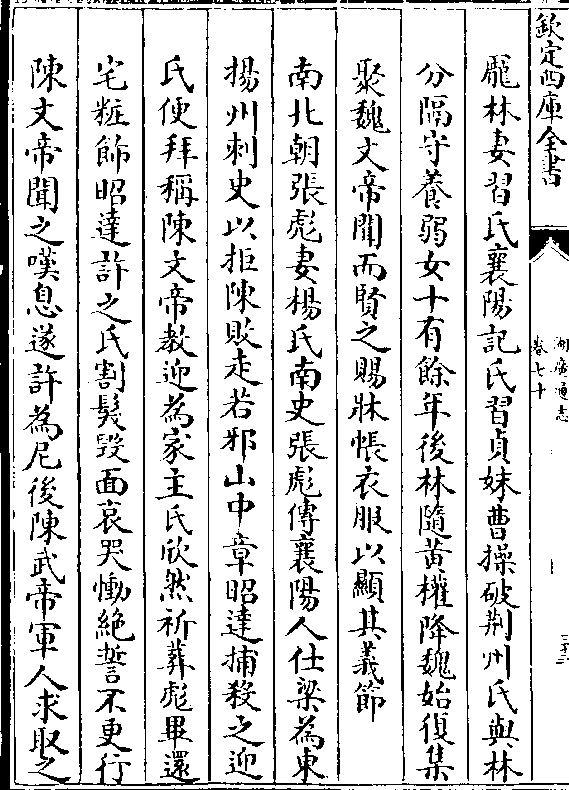 欽定四庫全書
湖廣通志
卷七十
龎林妻習氏襄陽記氏習貞妹曹操破荆州氏與林
分隔守養弱女十有餘年後林隨黃權降魏始復集
聚魏文帝聞而賢之賜牀帳衣服以顯其義節
南北朝張彪妻楊氏南史張彪傳襄陽人仕梁為東
揚州刺史以拒陳敗走若邪山中章昭達捕殺之迎
氏便拜稱陳文帝教迎為家主氏欣然祈葬彪畢還
宅粧飾昭達許之氏割髮毀面哀哭慟絶誓不更行
陳文帝聞之嘆息遂許為尼後陳武帝軍人求取之